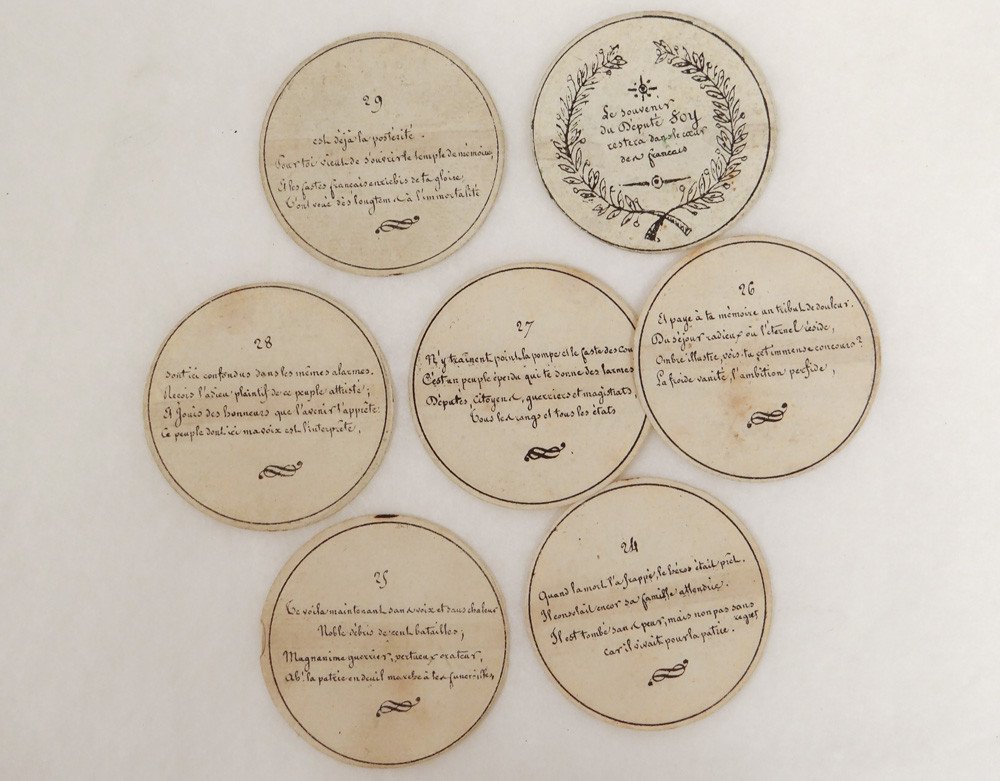 29
est déjà la postérité.
Pour toi vient de s'ouvrir le temple de mémoire,
Et les fastes français enrichis de ta gloire,
T'ont voué dès longtems à l'immortalité
Le souvenir
du Député Foy
restera dans le cœur
des français
28
sont ici confondus dans les mêmes alarmes.
Recois l'adieu plaintif de ce peuple attristé;
Et Jouis des honneurs que l'avenir t'apprête:
Ce peuple dont ici ma voix est l'interprète,
27
N'y traînent point la pompe et le faste des cou
C'est un peuple éperdu qui te donne des larmes
Députés, citoyens, guerriers et magistrats,
Tous les rangs et tous les états
26
Et paye à ta mémoire un tribut de douleur.
Du séjour radieux où l'éternel réside,
Ombre illustre, vois-tu cet immense concours?
La froide vanité, l'ambition perfide,
25
Te voila maintenant sans voix et sans chaleur
Noble débris de cent batailles;
Magnanime guerrier, vertueux orateur,
Ah! la patrie en deuil marche à tes funérailles,
24
Quand la mort l'a frappé, le héros était prêt.
Il consolait encor sa famille attendrie.
Il est tombé sans peur, mais non pas sans
regret
car il vivait pour la patrie.